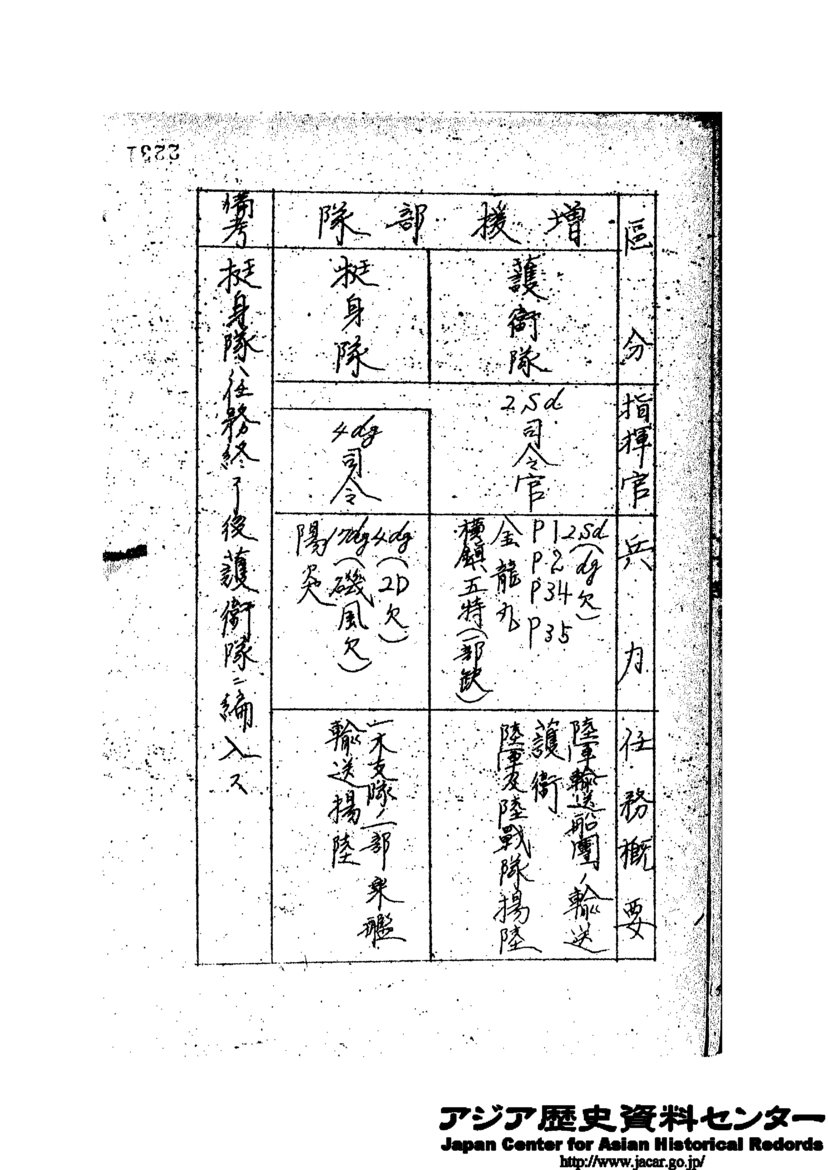 2231
區分
指揮官
兵力
任務概要
増援部隊
護衛隊
2Sd
司令官
2Sd(dg欠)
P1 P2 P34 P35
金龍丸
横鎮五特(一部缺)
陸軍輸送船團ノ輸送
護衛
陸軍及陸戰隊揚陸
挺身隊
4dg
司令
4dg(2D欠)
17dg(磯風欠)
陽炎
一木支隊ノ一部乗艦
輸送揚陸
備考
挺身隊ハ任務終了後護衛隊ニ編入ス
アジア歴史資料センター
Japan Center for Asian Historical Redords
http://www.jacar.go.jp/